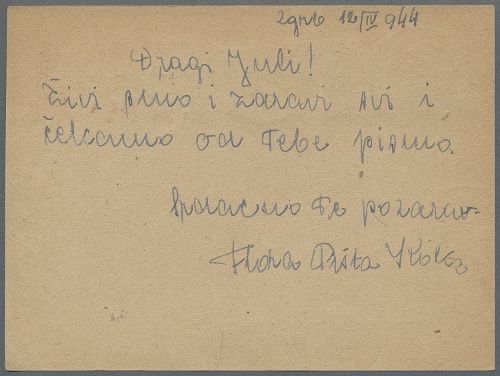 Zgrb 12/IV 944
Dragi Juli!
Živi smo i zdravi svi i
čekamo od Tebe pismo.
Srdačno Te pozdrav-
Pišta